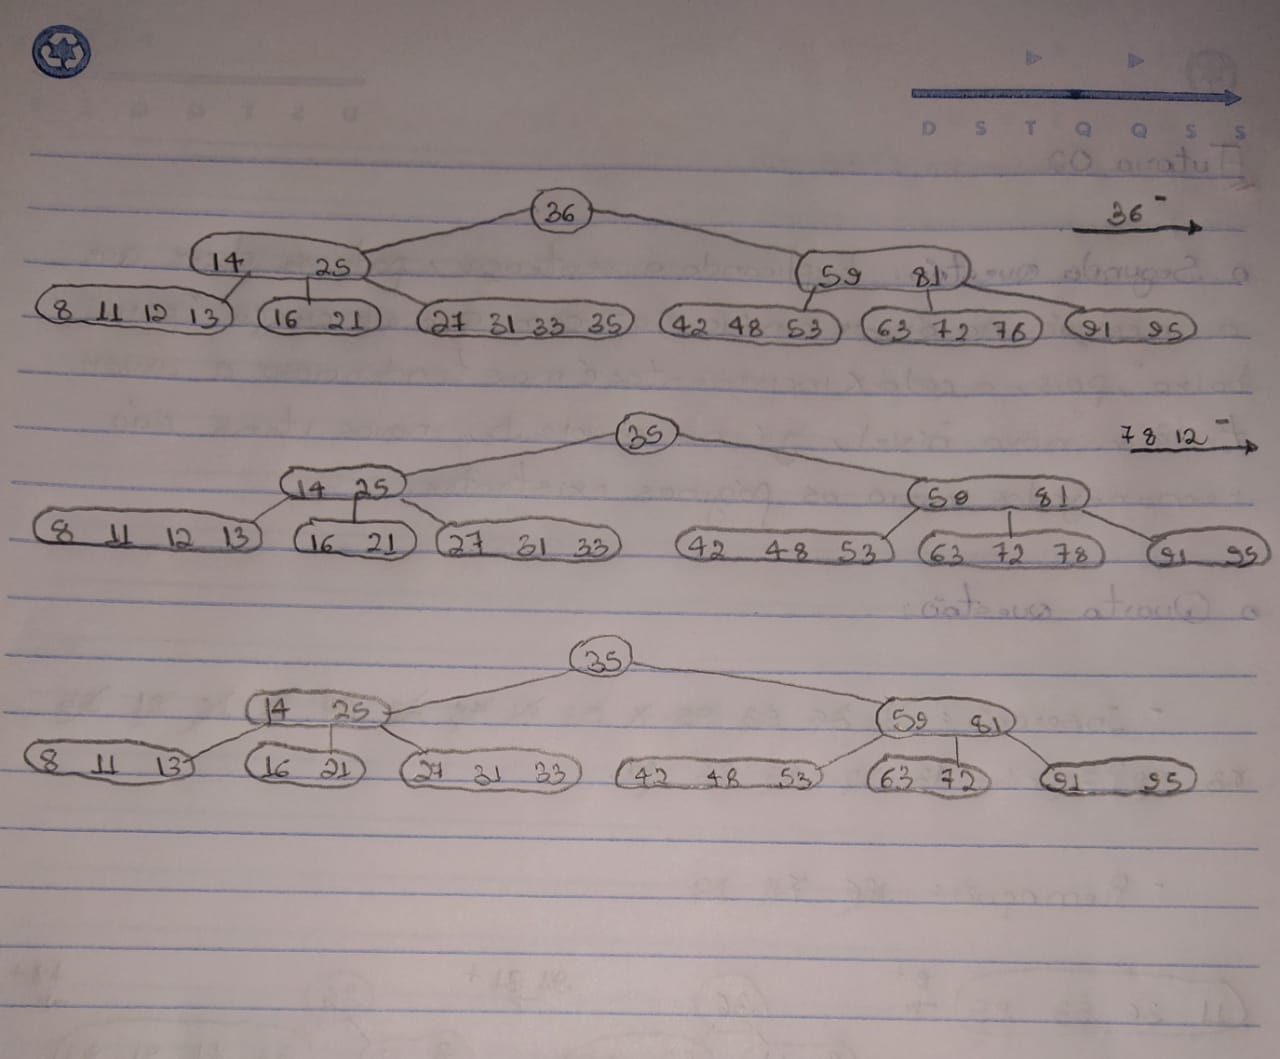 D S T Q Q S S
36
36 -
14 25
59 81
8 11 12 13
16 21
27 31 33 35
42 48 53
63 72 76
91 95
35
78 12 -
14 25
59 81
8 11 12 13
16 21
27 31 33
42 48 53
63 72 78
91 95
35
14 25
59 81
8 11 13
16 21
27 31 33
42 48 53
63 72
91 95